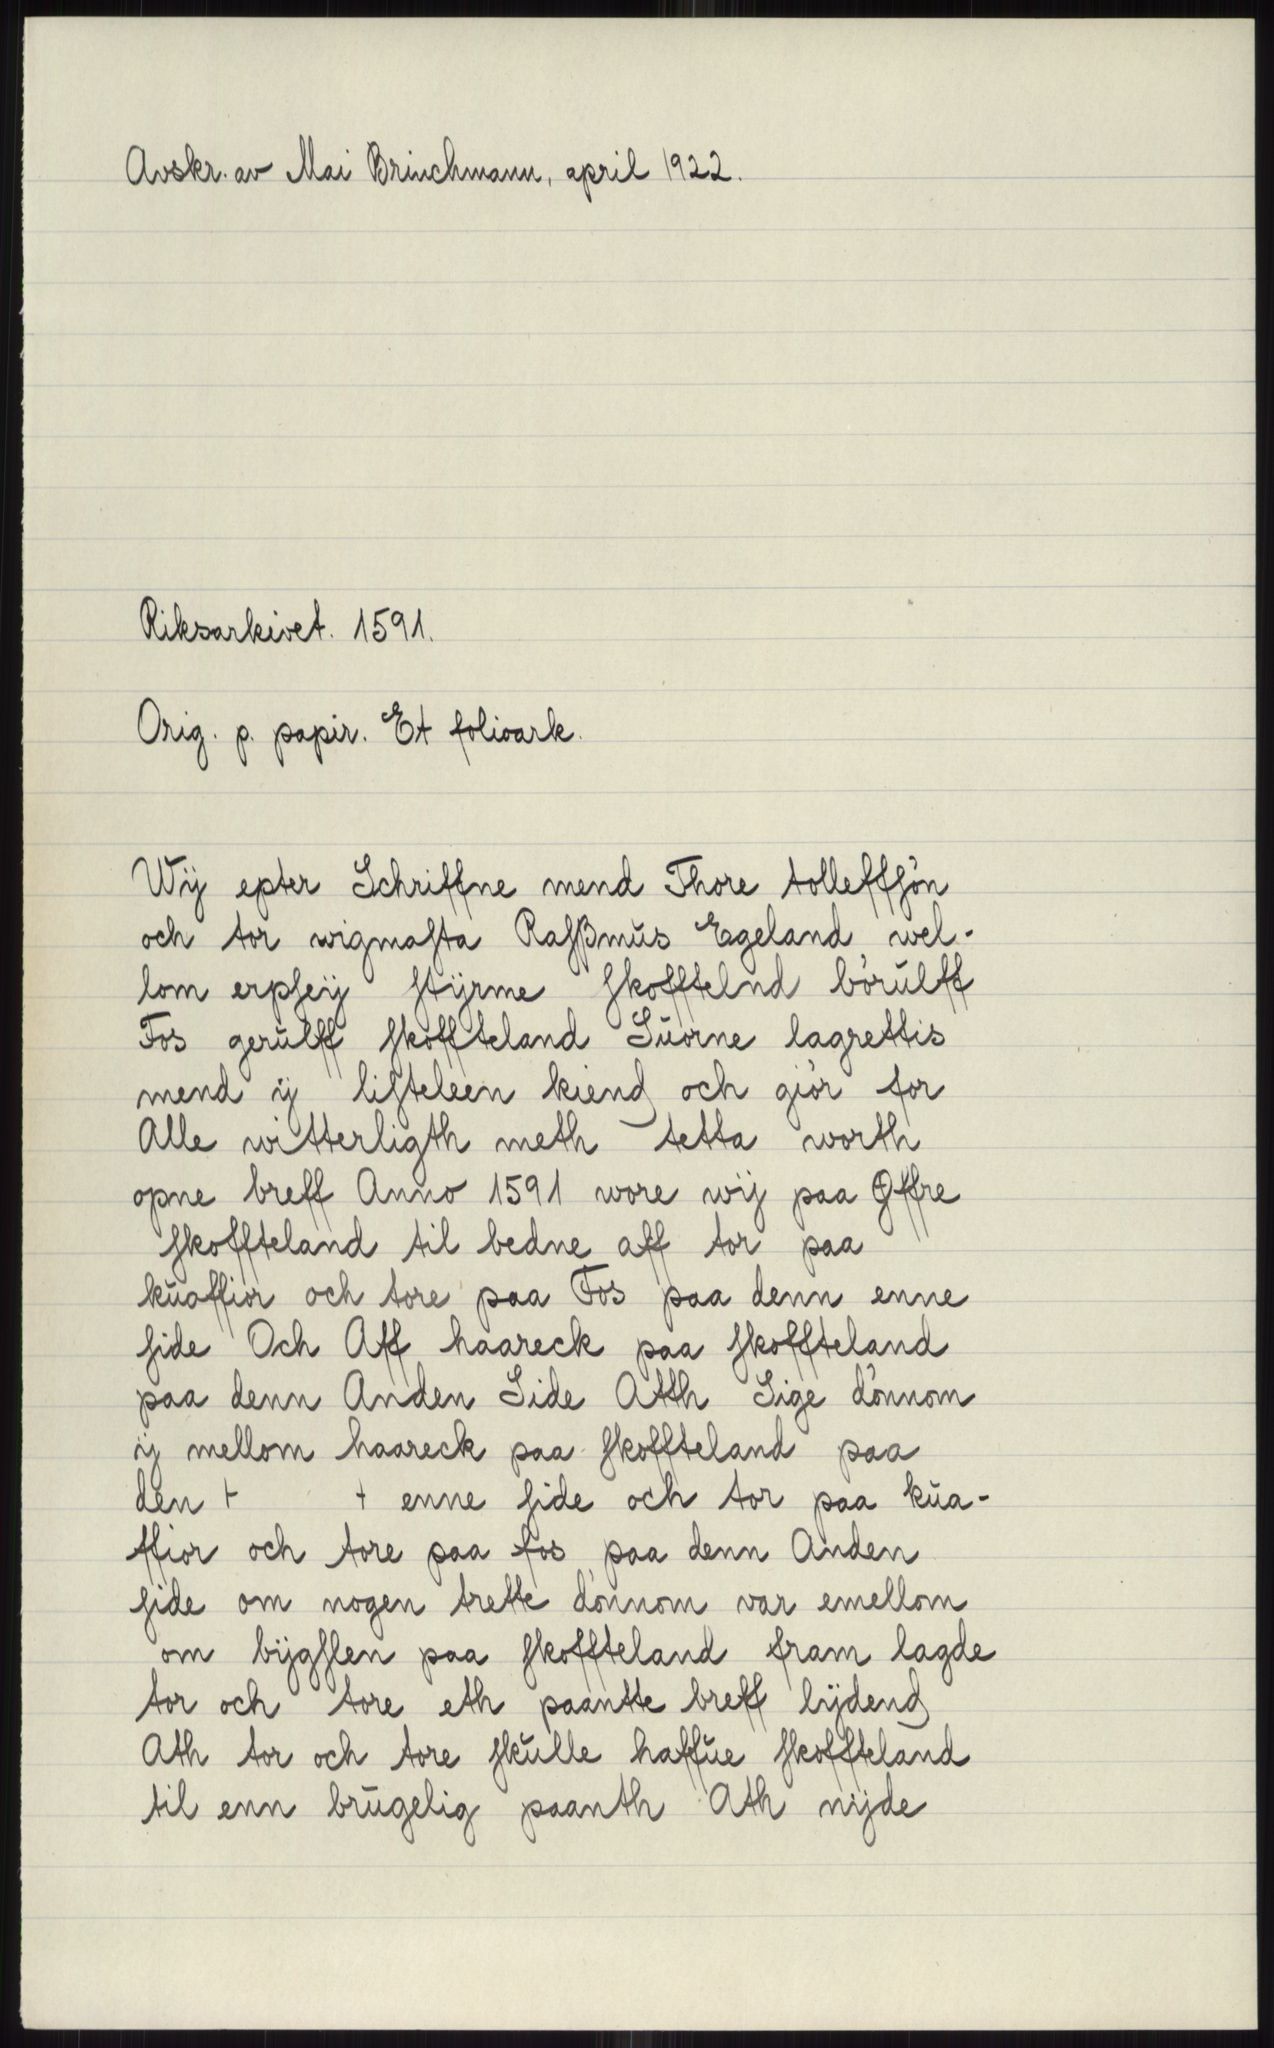 Avskr. av Mai Brinchmann, april 1922.
Riksarkivet. 1591.
Orig. p. papir. Et folioark.
Wij epter Schriffne mend Thore tolleffsøn
och tor wigmasta Rasßmus Egeland wel-
lom erpseij stijrme skofftelnd børulff
Fos gerulff skoffteland Suorne lagrettis
mend ij listeleen kiend och giør for
Alle witterligth meth tetta worth
opne breff Anno 1591 wore wij paa Øffre
skoffteland til bedne aff tor paa
kuaffior och tore paa Fos paa denn enne
side Och Aff haareck paa skoffteland
paa denn Anden Side Atth Sige dønnom
ij mellom haareck paa skoffteland paa
den + + enne side och tor paa kua-
ffior och tore paa fos paa denn Anden
side om nogen trette dønnom var emellom
om bijgslen paa skoffteland fram lagde
tor och tore eth paantte breff lijdend
Ath tor och tore skulle haffue skoffteland
til enn brugelig paanth Ath nijde